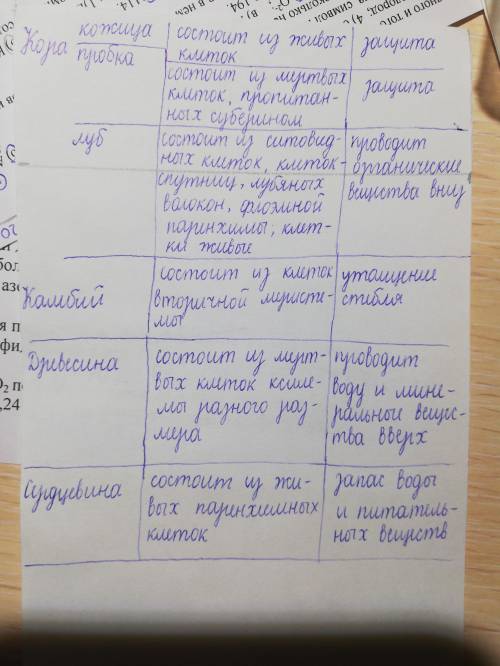 Кора кожица состоит из живых клеток защита
пробка состоит из мертвых клеток, пропитан-
ных суберином защита
луб состоит из ситовид-
ных клеток, клеток-
спутниц, лубяных
волокон, флоэмной
паренхимы; клет-
ки живые
проводит
органические
вещества вниз
Камбий
состоит из клеток
вторичной меристе-
мы
утолщение
стебля
Древесина
состоит из мерт-
вых клеток ксиле-
мы разного раз-
мера
проводит
воду и мине-
ральные вещес-
тва вверх
Сердцевина
состоит из жи-
вых паренхимных
клеток
запас воды
и питатель-
ных веществ